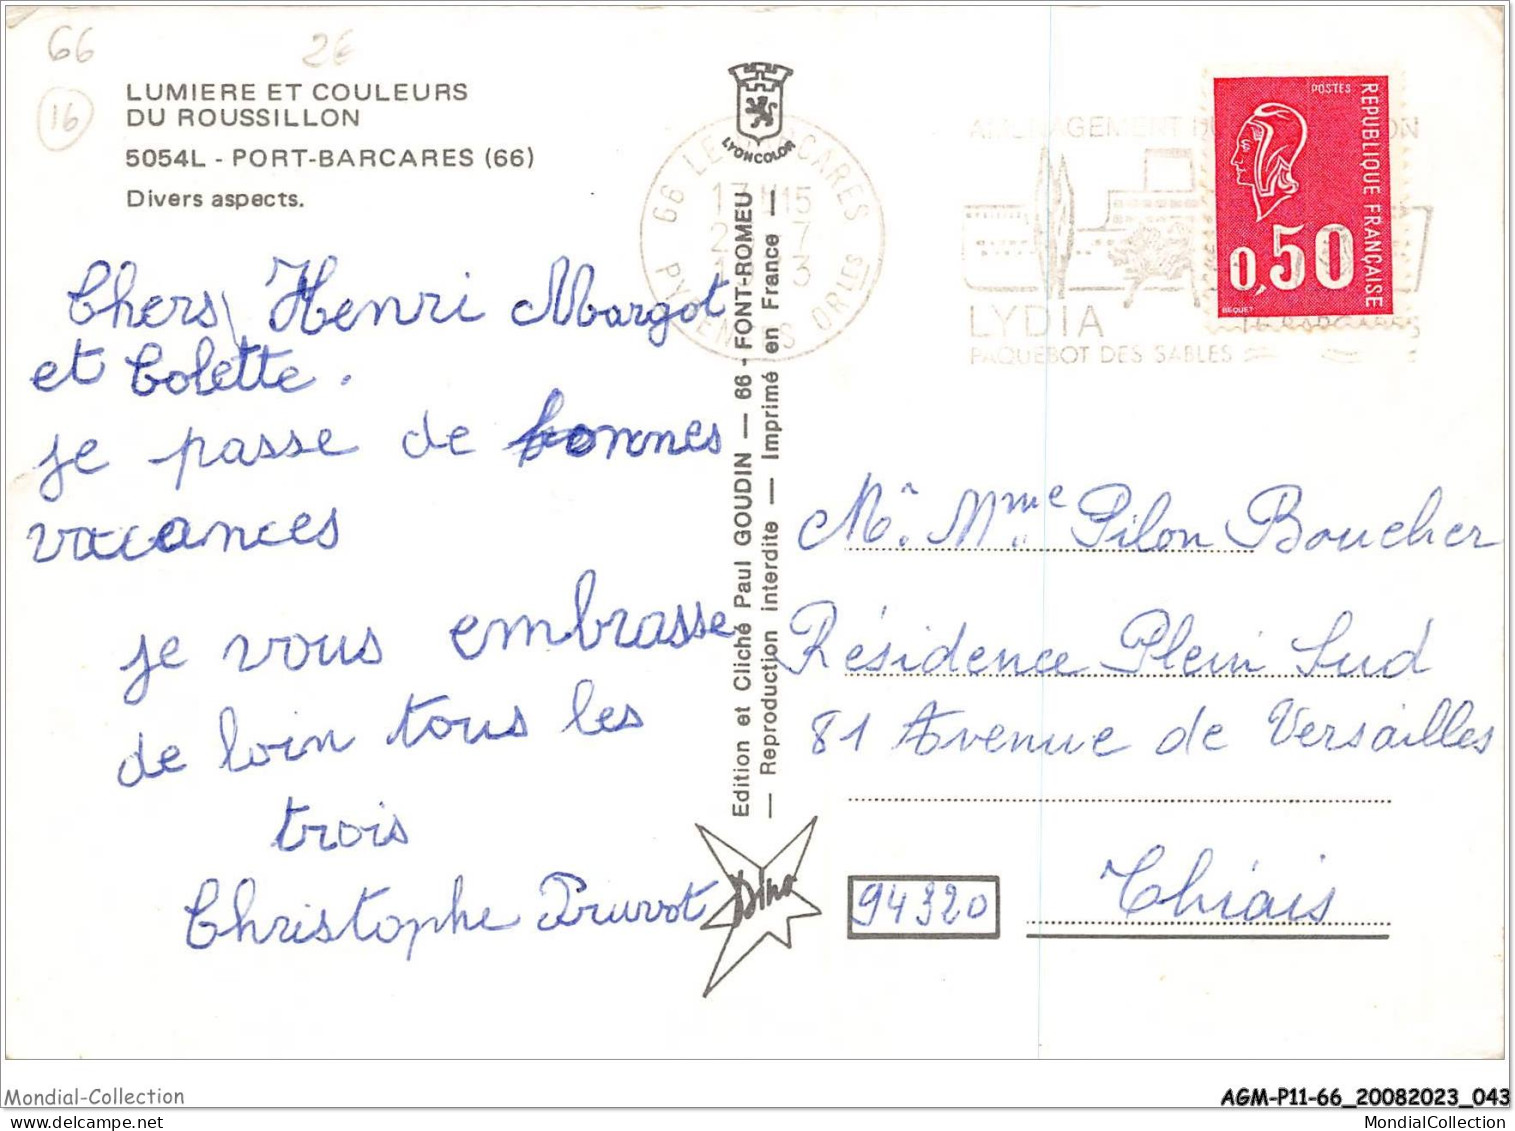 66
2€
16
LUMIERE ET COULEURS
DU ROUSSILLON
5054L - PORT-BARCARES (66)
Divers aspects.
Chers Henri Margot
et Colette.
je passe de bonnes
vacances
je vous embrasse
de loin tous les
trois
Christophe Pruvot
LYONCOLOR
Edition et Cliché Paul GOUDIN — 66 - FONT-ROMEU
— Reproduction interdite — Imprimé en France —
Dino
66 LE BARCARES
17H15
PYRENEES ORLES
AMENAGEMENT
LYDIA
PAQUEBOT DES SABLES
POSTES
REPUBLIQUE FRANÇAISE
0,50
BEQUET
Mr. Mme Pilon Boucher
Résidence Plein Sud
81 Avenue de Versailles
94320
Thiais
Mondial-Collection
AGM-P11-66_20082023_043
mondial-collection.com
MondialCollection